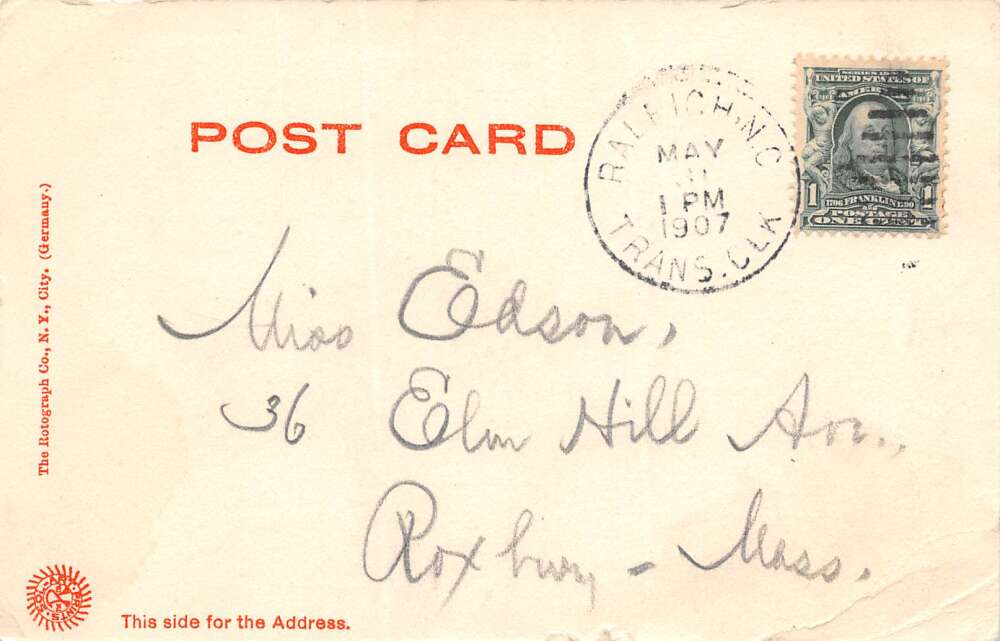 POST CARD
RALEIGH, N.C.
MAY
1 PM
1907
TRANS. CLK
SERIES 1902
UNITED STATES OF
AMERICA
1 1
1706 FRANKLIN 1790
POSTAGE
ONE CENT
Miss Edson,
36 Elm Hill Ave.,
Roxbury - Mass.
The Rotograph Co., N. Y., City. (Germany.)
This side for the Address.